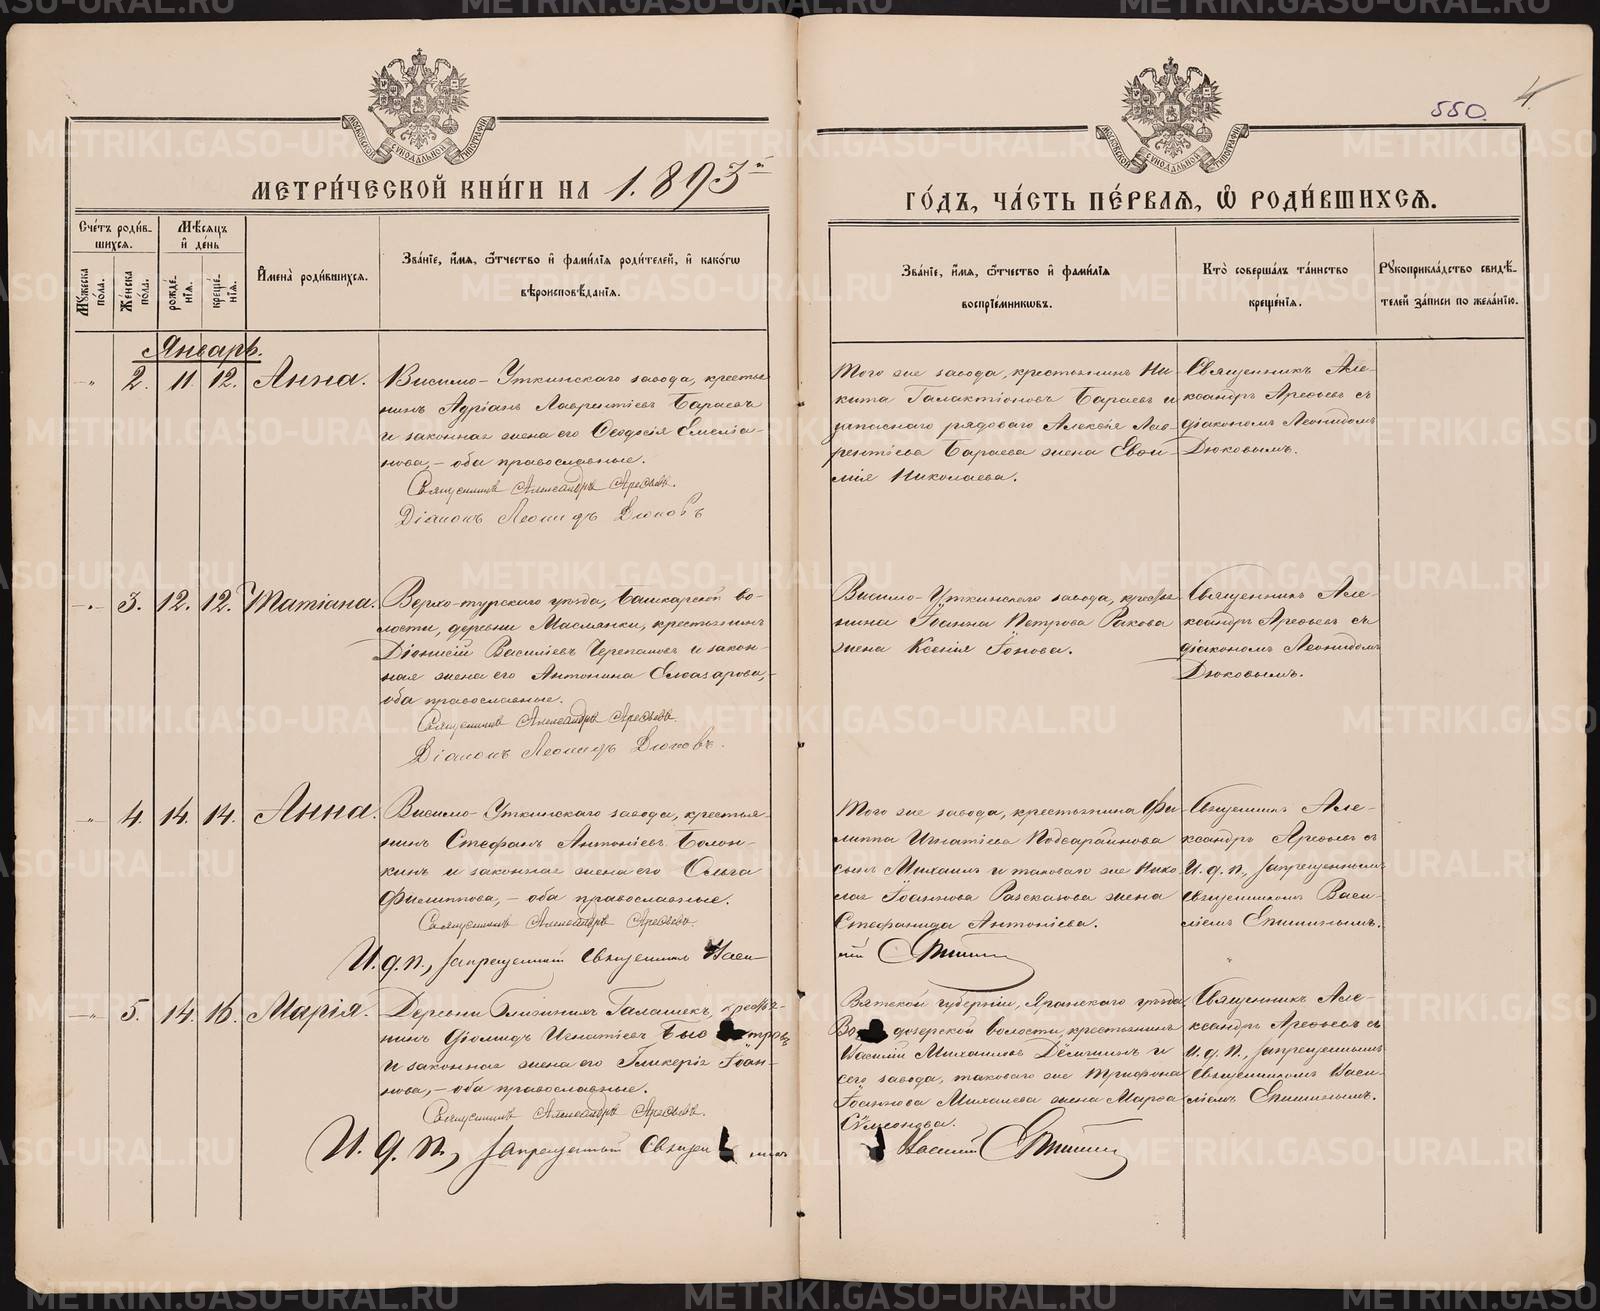 550. 4.
МЕТРИ́ЧЕСКОЙ КНИ́ГИ НА 1893й
ГО́ДЪ, ЧА́СТЬ ПЕ́РВАѦ, Ѽ РОДИ́ВШИХСѦ.
Сче́тъ роди́в-
шихсѧ.
Мѣ́сѧцъ
и҆ де́нь
Мꙋжеска по́ла.
Же́нска по́ла.
рожде́-
нїѧ.
креще́-
нїѧ.
И҆мена̀ роди́вшихсѧ.
Зва́нїе, и҆́мѧ, ѻ҆́тчество и҆ фамі́лїѧ роди́телей, и҆ како́гѡ
вѣроисповѣ́данїѧ.
Зва́нїе, и҆́мѧ, ѻ҆́тчество и҆ фамі́лїѧ
воспрїе́мникѡвъ.
Кто̀ соверша́лъ та́инство
креще́нїѧ.
Рꙋкоприкла́дство свидѣ́-
телей за́писи по жела́нїю.
Январь.
-"- 2. 11. 12. Анна.
Висимо-Уткинскаго завода, крестья
нинъ Адріанъ Лаврентіевъ Бараевъ
и законная жена его Ѳеодосія Емеліа-
нова, - оба православные.
Священникъ Александръ Арефьевъ.
Діаконъ Леонидъ Дюковъ
Того же завода, крестьянинъ Ни-
кита Галактіоновъ Бараевъ и
запаснаго рядоваго Алексѣя Лав-
рентіева Бараева жена Евѳи-
мія Николаева.
Священникъ Але-
ксандръ Арефьевъ съ
діакономъ Леонидомъ
Дюковымъ.
-"- 3. 12. 12. Татіана.
Верхотурскаго уѣзда, Башкарской во-
лости, деревни Маслянки, крестьянинъ
Діонисій Василіевъ Черепановъ и закон-
ная жена его Антонина Елеазарова, -
оба православные.
Священникъ Александръ Арефьевъ.
Діаконъ Леонидъ Дюковъ.
Висимо-Уткинскаго завода, крестья
нина Іоанна Петрова Ракова
жена Ксенія Іонова.
Священникъ Але-
ксандръ Арефьевъ съ
діакономъ Леонидомъ
Дюковымъ.
-"- 4. 14. 14. Анна.
Висимо-Уткинскаго завода, крестья-
нинъ Стефанъ Антоніевъ Болон-
кинъ и законная жена его Ольга
Филиппова, - оба православные.
Священникъ Александръ Арефьевъ.
И. д. п., запрещенный священникъ Васи-
Того же завода, крестьянина Фи-
липпа Игнатіева
сынъ Михаилъ и таковаго же Нико-
лая Іоаннова Разсказова жена
Стефанида Антоніева.
лій Епишинъ
Священникъ Але-
ксандръ Арефьевъ съ
И. д. п., запрещеннымъ
священникомъ Васи-
ліемъ Епишинымъ.
-"- 5. 14. 16. Марія.
Деревни Ближнихъ Галашекъ, крестья-
нинъ Діомидъ Игнатіевъ
и законная жена его Гликерія Іоан-
нова, - оба православные.
Священникъ Александръ Арефьевъ.
И. д. п., запрещенный Священникъ
Вятской губерніи, Яранскаго уѣзда
волости, крестьянинъ
Василій Михаиловъ и
сего завода, таковаго же Трифона
Іоаннова Михалева жена Марѳа
Сѵмеонова.
Василій Епишинъ
Священникъ Але-
ксандръ Арефьевъ съ
И. д. п., запрещеннымъ
Священникомъ Васи-
ліемъ Епишинымъ.
METRIKI.GASO-URAL.RU